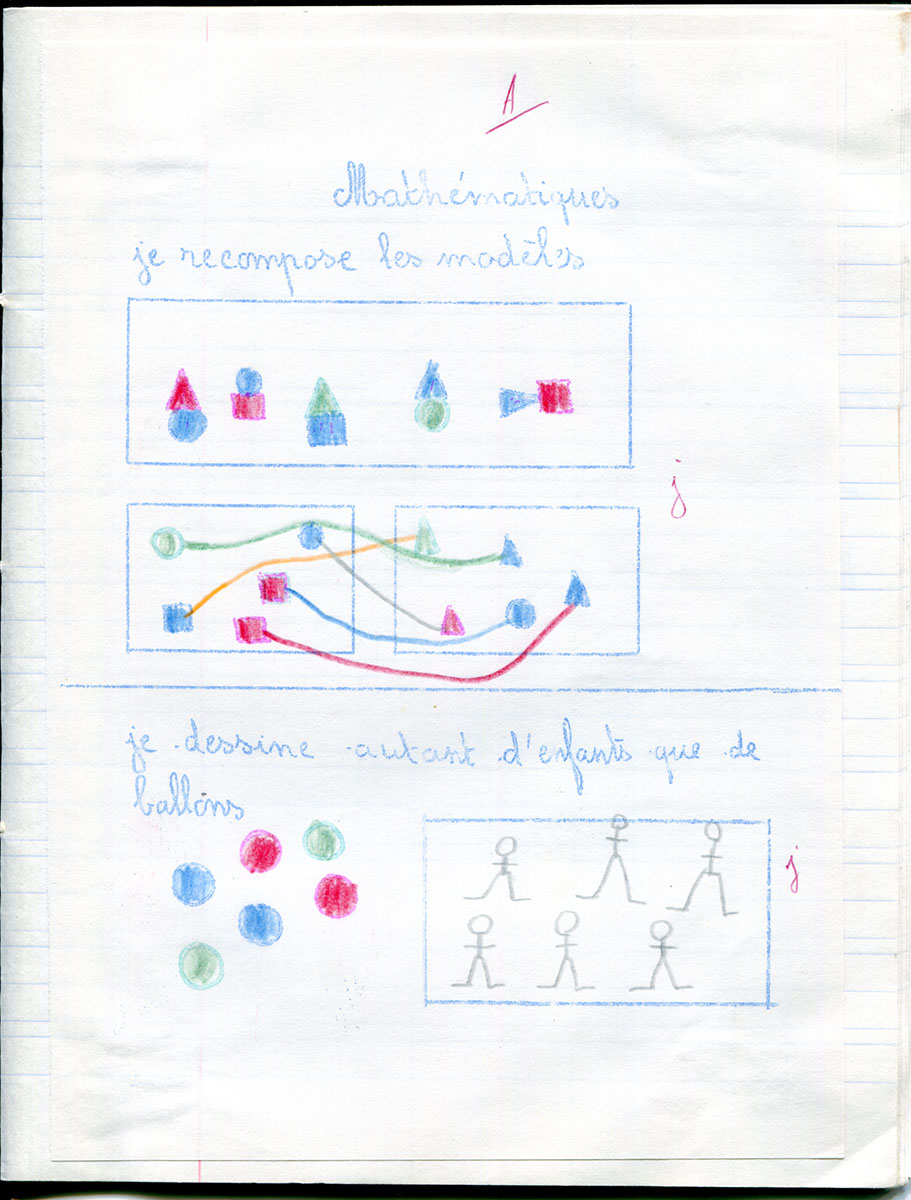 A
Mathématiques
je recompose les modèles
j
je dessine autant d'enfants que de
ballons
j